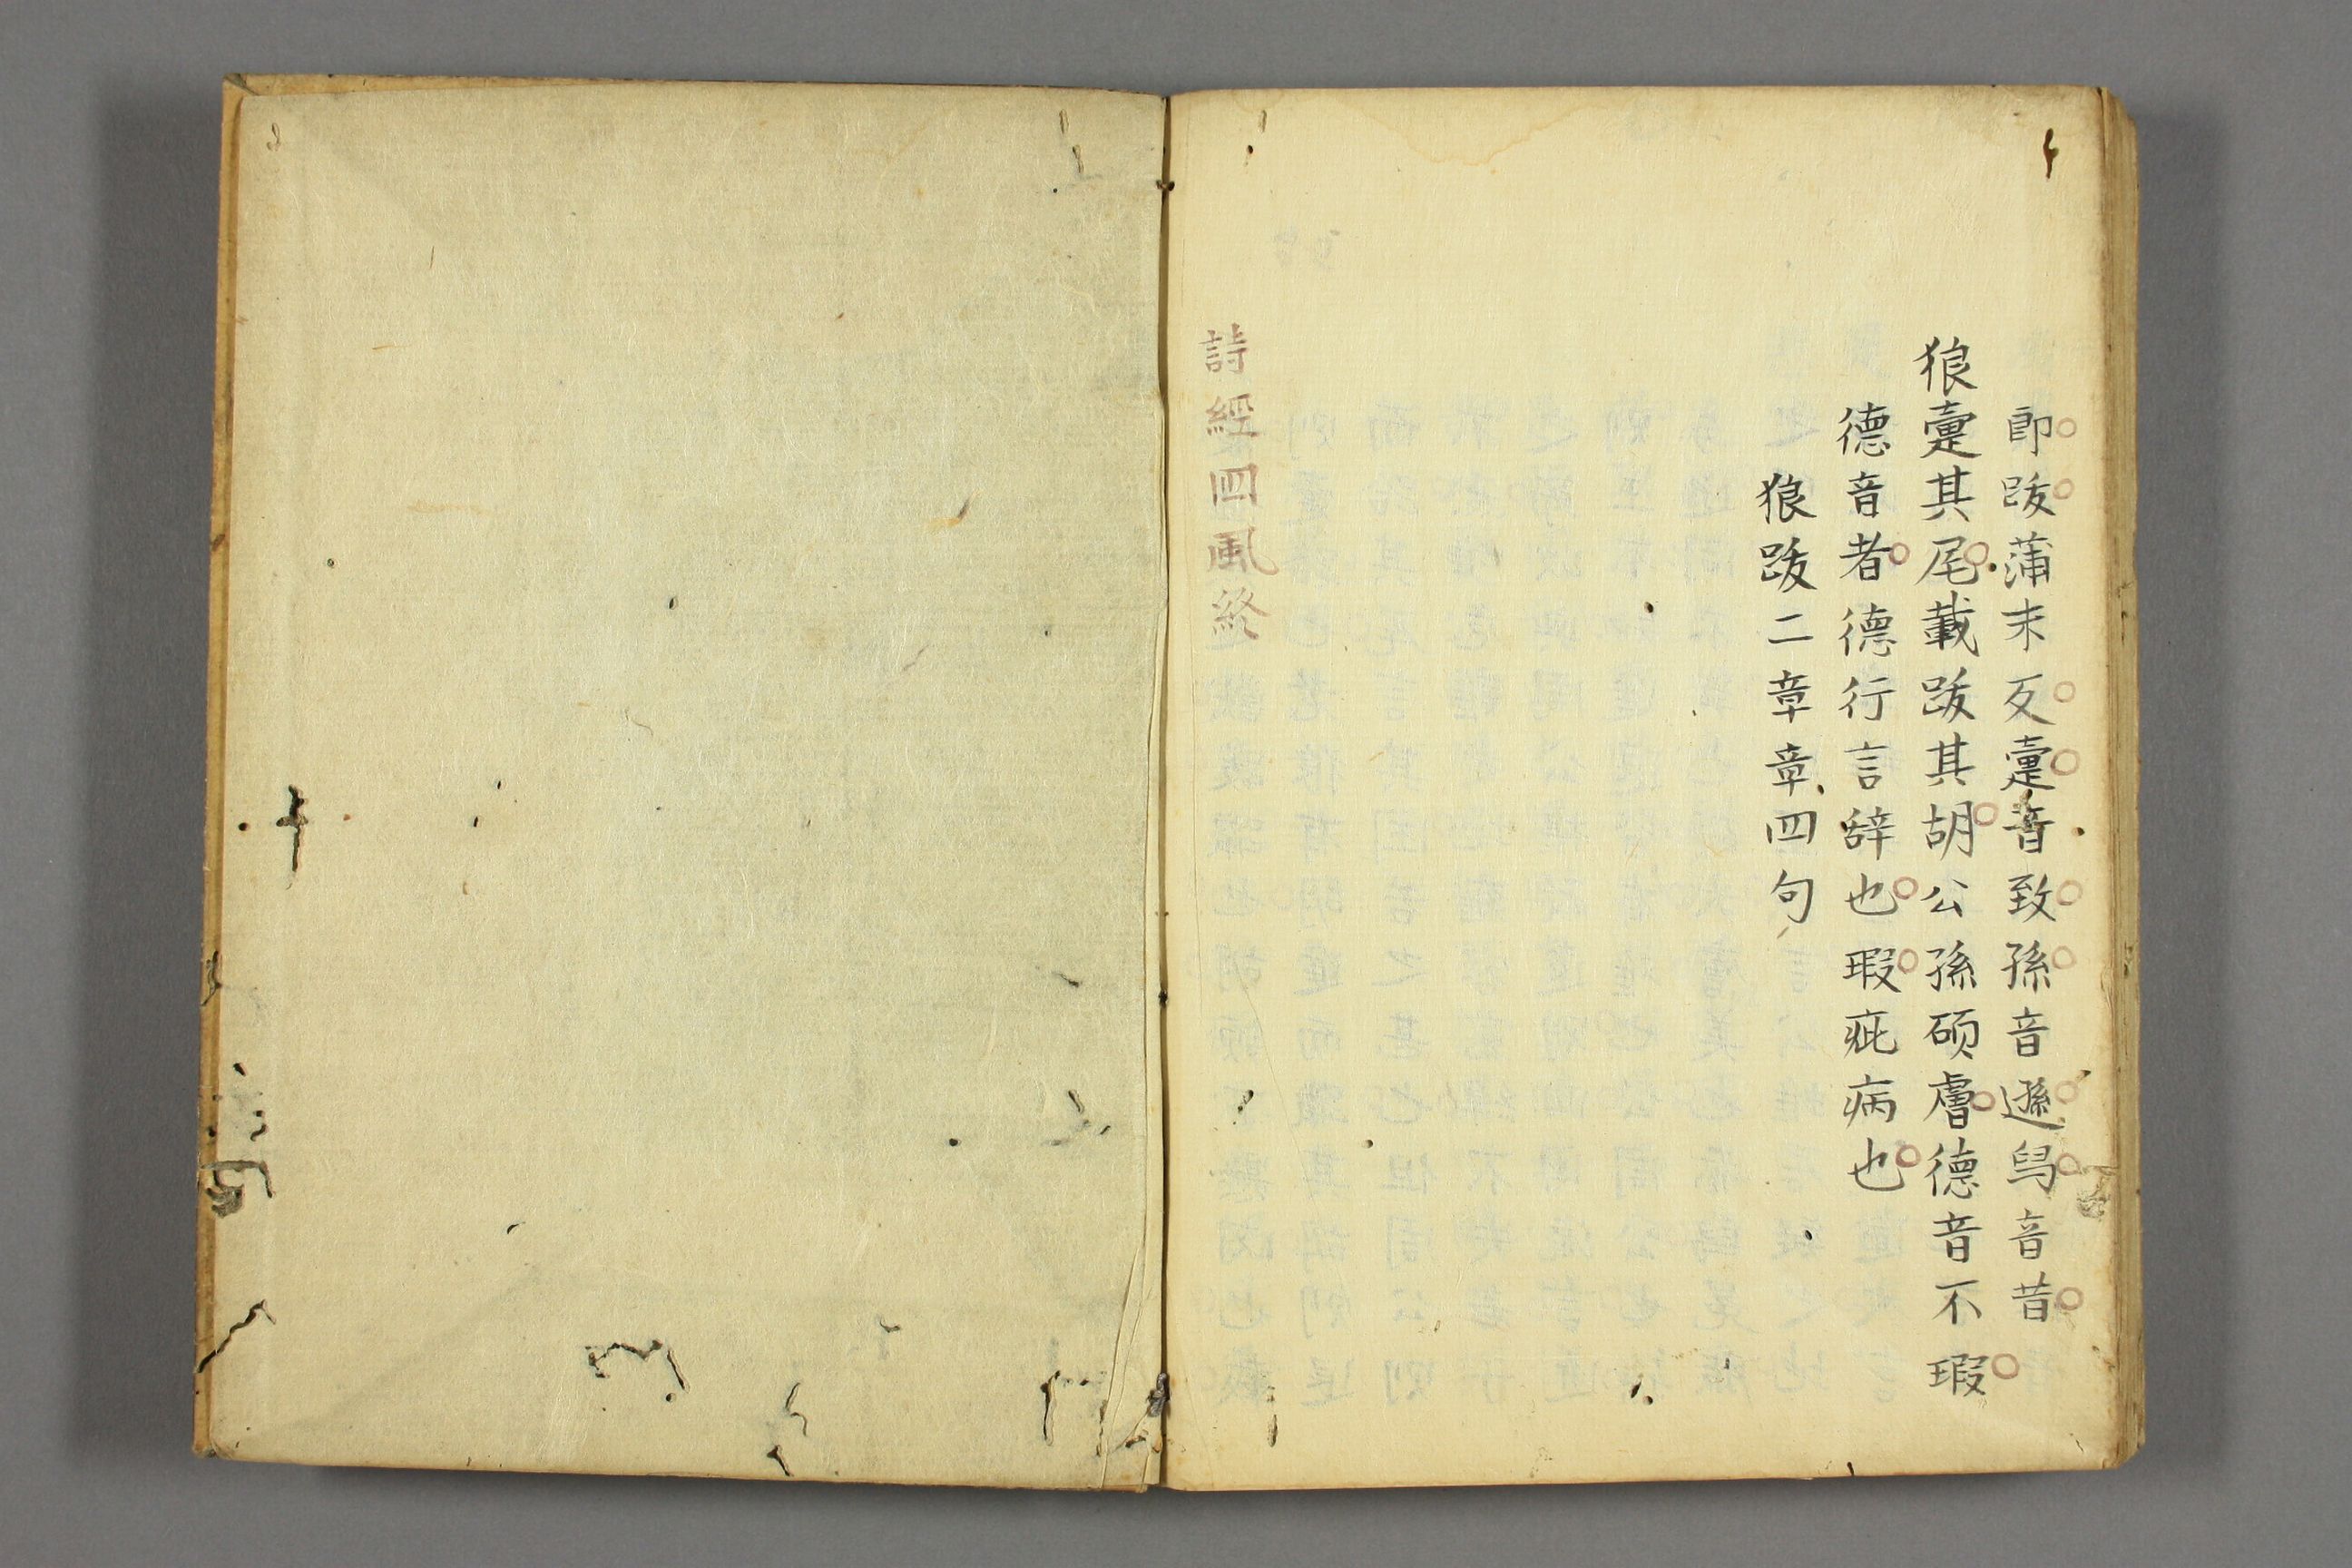 即跋蒲末反疐音致孫音遜舄音昔
狼疐其尾載跋其胡公孫碩膚德音不瑕
德音者德行言辞也瑕疵病也
狼跋二章章四句
詩經国風終